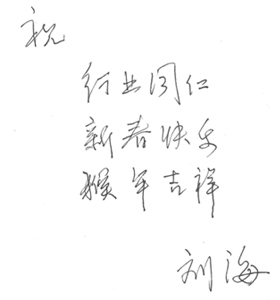 祝
行业同仁
新春快乐
猴年吉祥
刘海